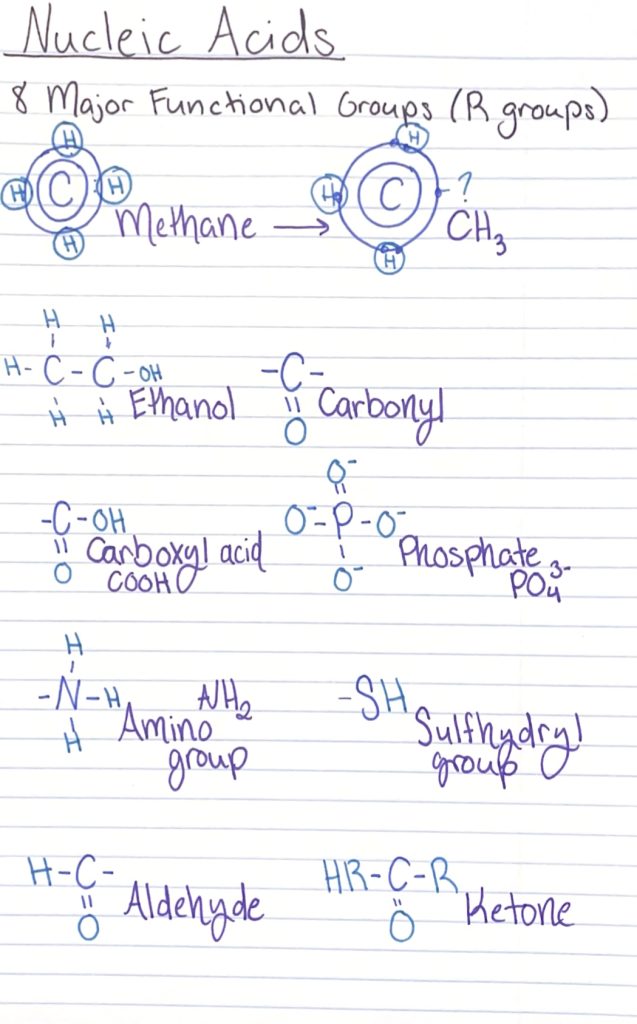 Nucleic Acids
8 Major Functional Groups (R groups)
H H
H C H H C - ?
H Methane → H CH₃
H H
H - C - C - OH - C -
H H Ethanol O Carbonyl
O⁻
- C - OH O⁻ - P - O⁻
O Carboxyl acid O⁻ Phosphate
COOH PO₄³⁻
H
- N - H NH₂ - SH
H Amino Sulfhydryl
group group
H - C - HR - C - R
O Aldehyde O Ketone